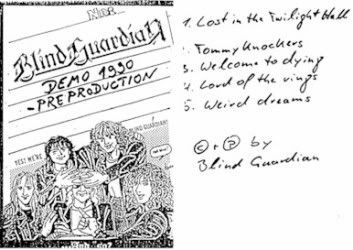 Blind Guardian
DEMO 1990
-PREPRODUCTION
YES! WE'RE
BLIND GUARDIAN!
1. Lost in the Twilight Hall
. Tommyknockers
3. Welcome to dying
4. Lord of the rings
5. Weird dreams
© + ℗ by
Blind Guardian